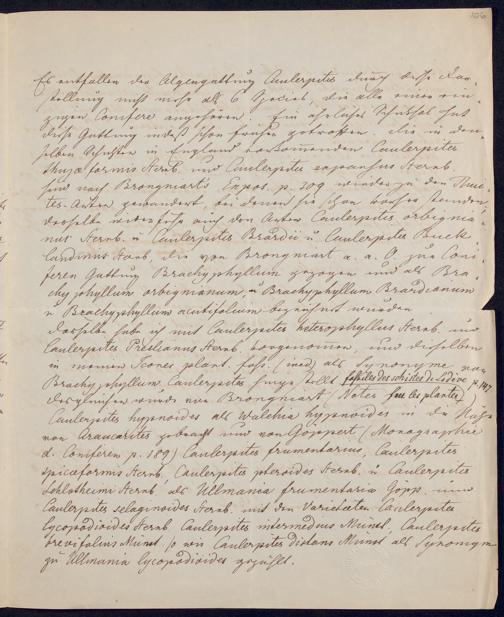 106
Es entfallen der Algengattung Caulerpites durch diese Dar-
stellung nicht mehr als 6 Species, die alle einer ein-
zigen Conifere angehören. Ein ähnliches Schicksal hat
diese Gattung indeß schon früher getroffen. Die in den-
selben Schichten in England vorkommenden Caulerpites
thujaeformis Sternb. und Caulerpites expansus Sternb.
sind nach Brongniarts Expos. p. 209 wieder zu den Thui-
tes-Arten gewandert, bei denen sie schon vorher standen,
dasselbe widerfuhr auch den Arten Caulerpites orbignia-
nus Sternb. u Caulerpites Brardii u Caulerpites Buck
landianus Sternb., die von Brongniart a. a. O. zur Coni-
feren Gattung Brachyphyllum gezogen und als Bra-
chyphyllum orbignianum, u Brachyphyllum Brardianum
u Brachyphyllum acutifolium bezeichnet wurden.
Dasselbe habe ich mit Caulerpites heterophyllus Sternb. und
Caulerpites Preslianus Sternb. vorgenommen, und dieselben
in meinen Icones plant. foss. (ined.) als Synonyme von
Brachyphyllum Caulerpites hingestellt. fossiles des schistes de Lodève p. 147
Desgleichen wurde von Brongniart (Notes sur les plantes)
Caulerpites hypnoides als Walchia hypnoides in die Nähe
von Araucarites gebracht und von Göppert (Monographie
d. Coniferen p. 189) Caulerpites frumentarius, Caulerpites
spicaeformis Sternb, Caulerpites pteroides Sternb. u Caulerpites
Schlotheimi Sternb als Ullmania frumentaria Göpp. und
Caulerpites selaginoides Sternb. mit den Varietäten Caulerpites
lycopodioides Sternb Caulerpites intermedius Münst, Caulerpites
brevifolius Münst. so wie Caulerpites distans Münst als Synonym
zu Ullmania lycopodioides gezählt.